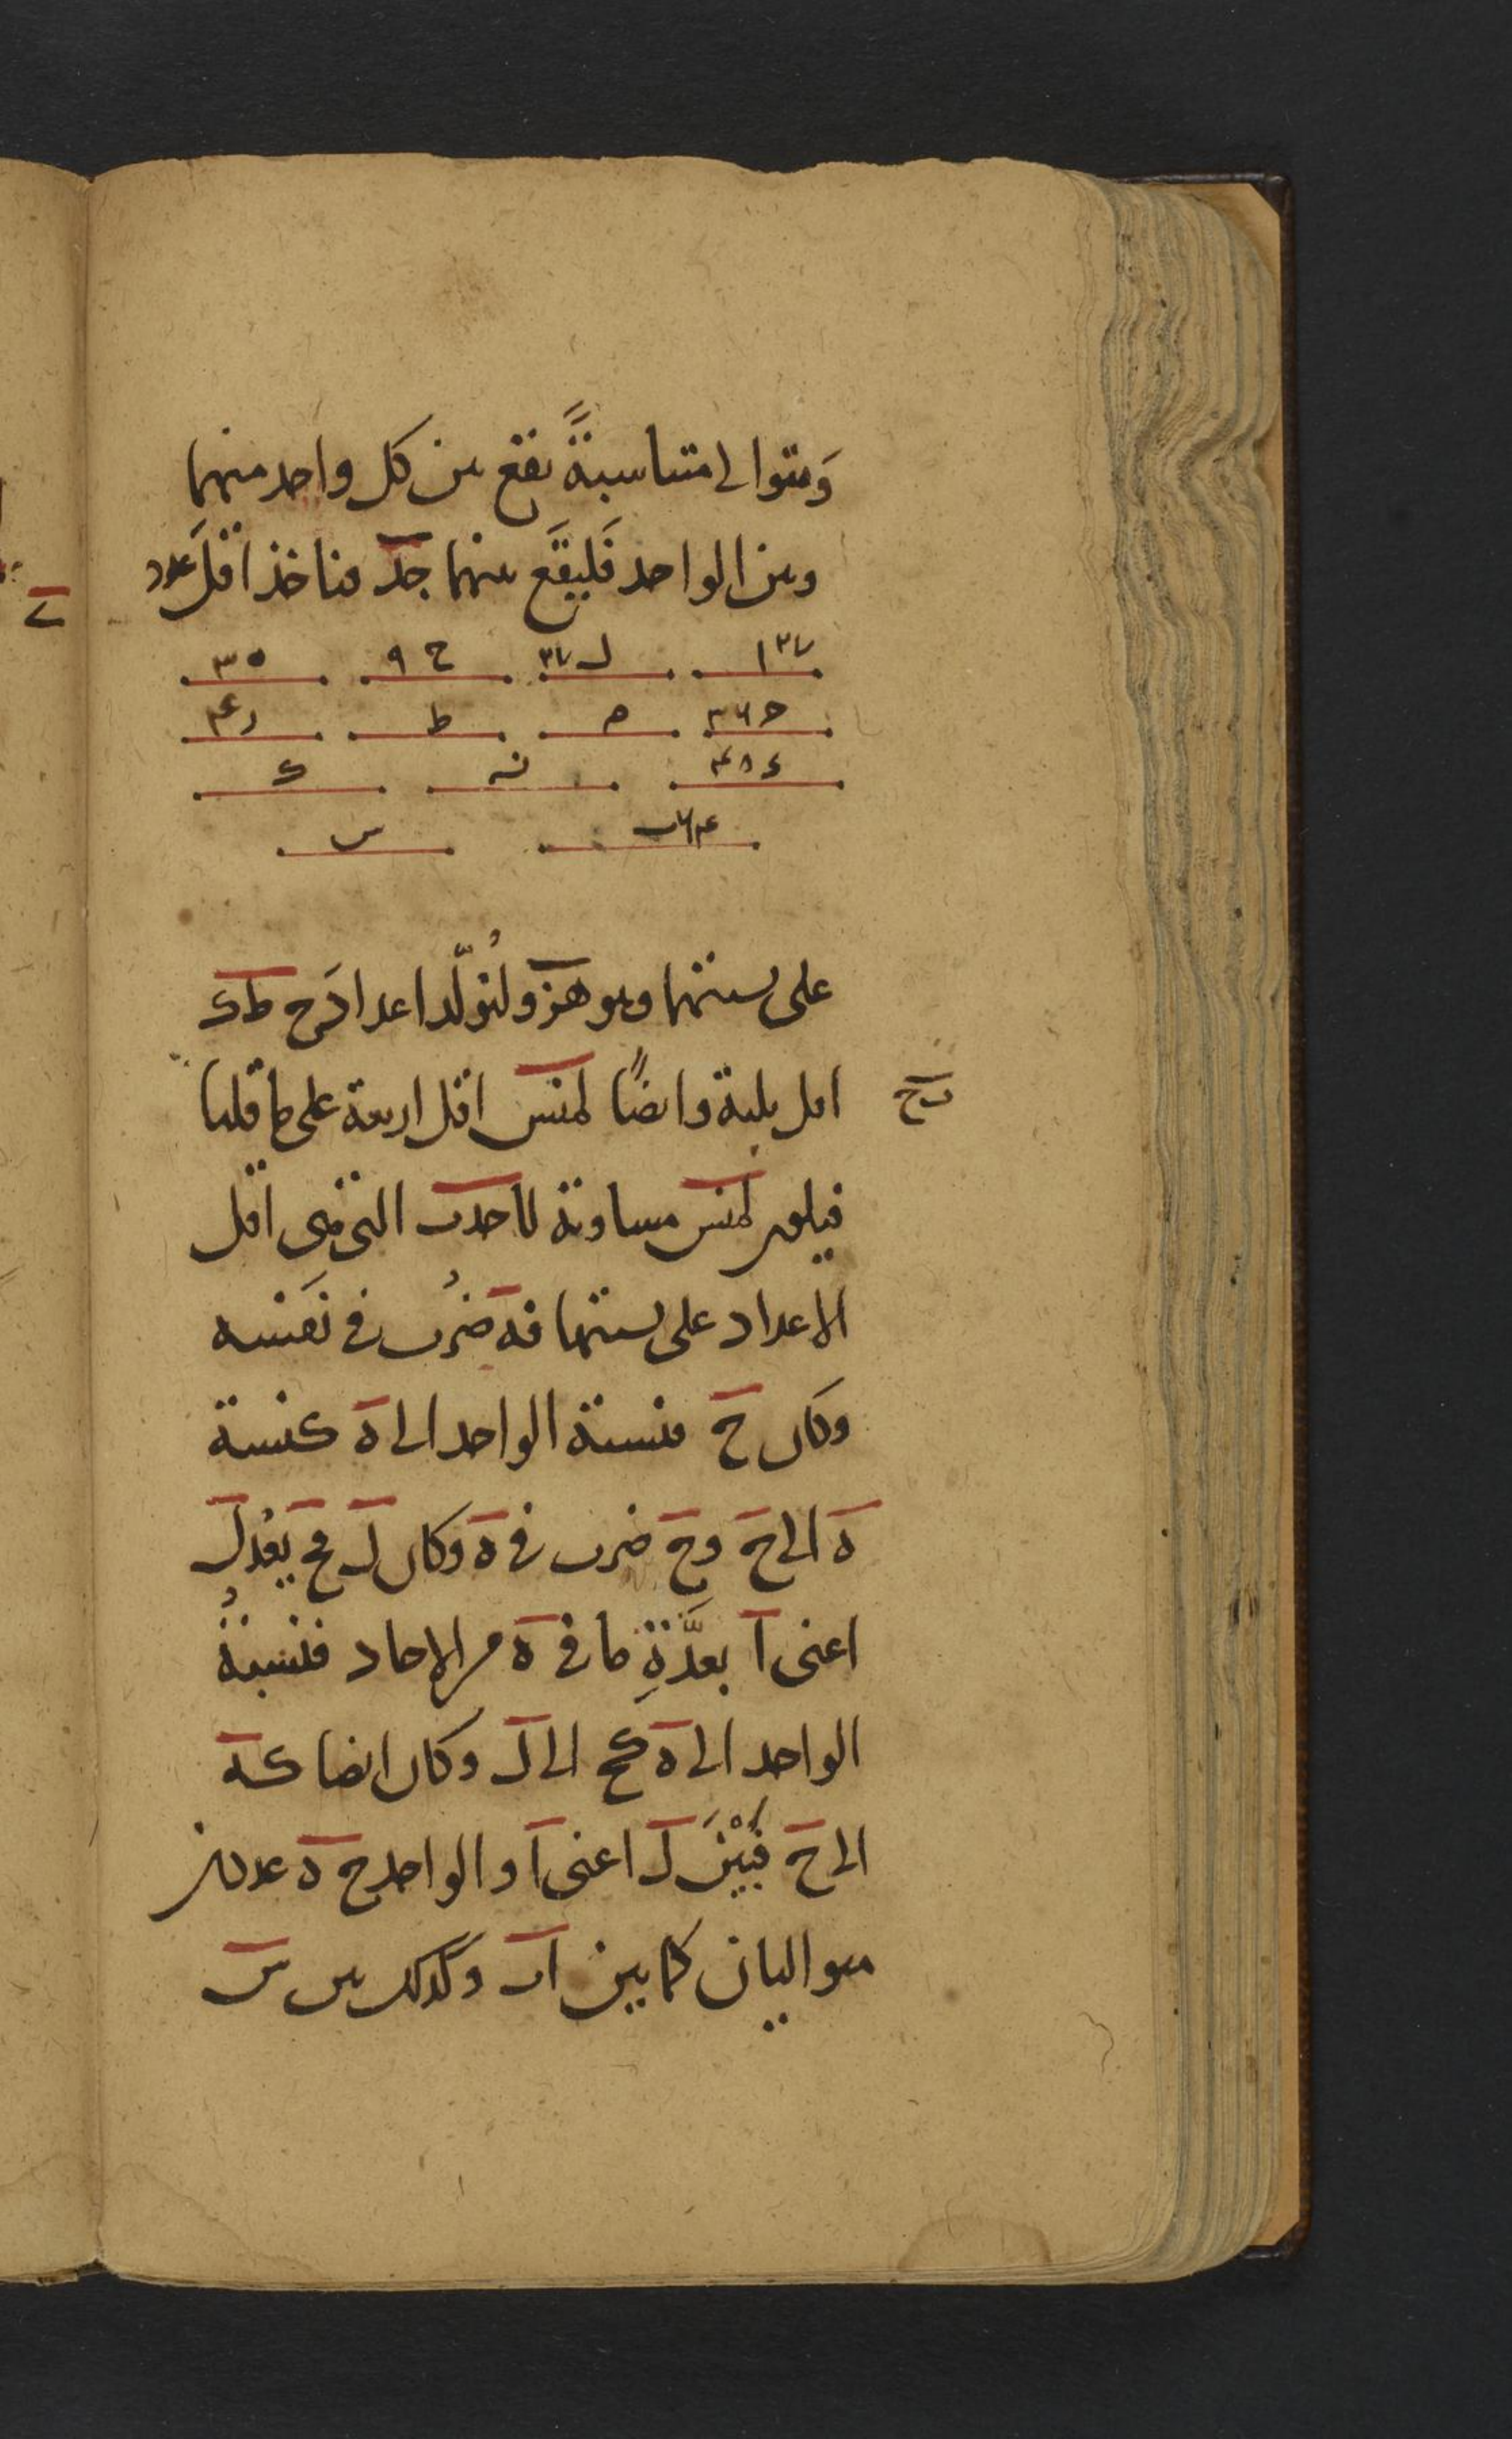 وَ متوالى متناسبةً تقع بين كل واحد منهما
وبين الواحد فَليقَع بينهما جد فناخذ اقلَ عدد
ا ٢٧ ل ٢٧ ح ٩ ه ٣
ج ٣٦ م ط ر ٤
د ٤٨ ن ك
ب ٦٤ س
على نسبتهما وهو هز ولنولّد اعداد َح ط ك
رح
اقل ثلثة وايضًا لمنس اقل اربعة على ما قلنا
فيكون لمنس مساوية لاحدب التى هى اقل
الاعداد على نسبتها فه ضُرب فى نَفسه
وكان ح فنسبة الواحد الى ه كنسبة
ه الى ح و ح ضرب فى ه وكان ل فح يعُد ل
اعنى ا بعدَّةِ ما فى ه من الاحاد فنسبةُ
الواحد الى ه كح الى ل وكان ايضا كه
الى ح فبَيْنَ ل اعنى ا والواحد ح ه عددان
متواليان كما بين اب وكذلك بين س